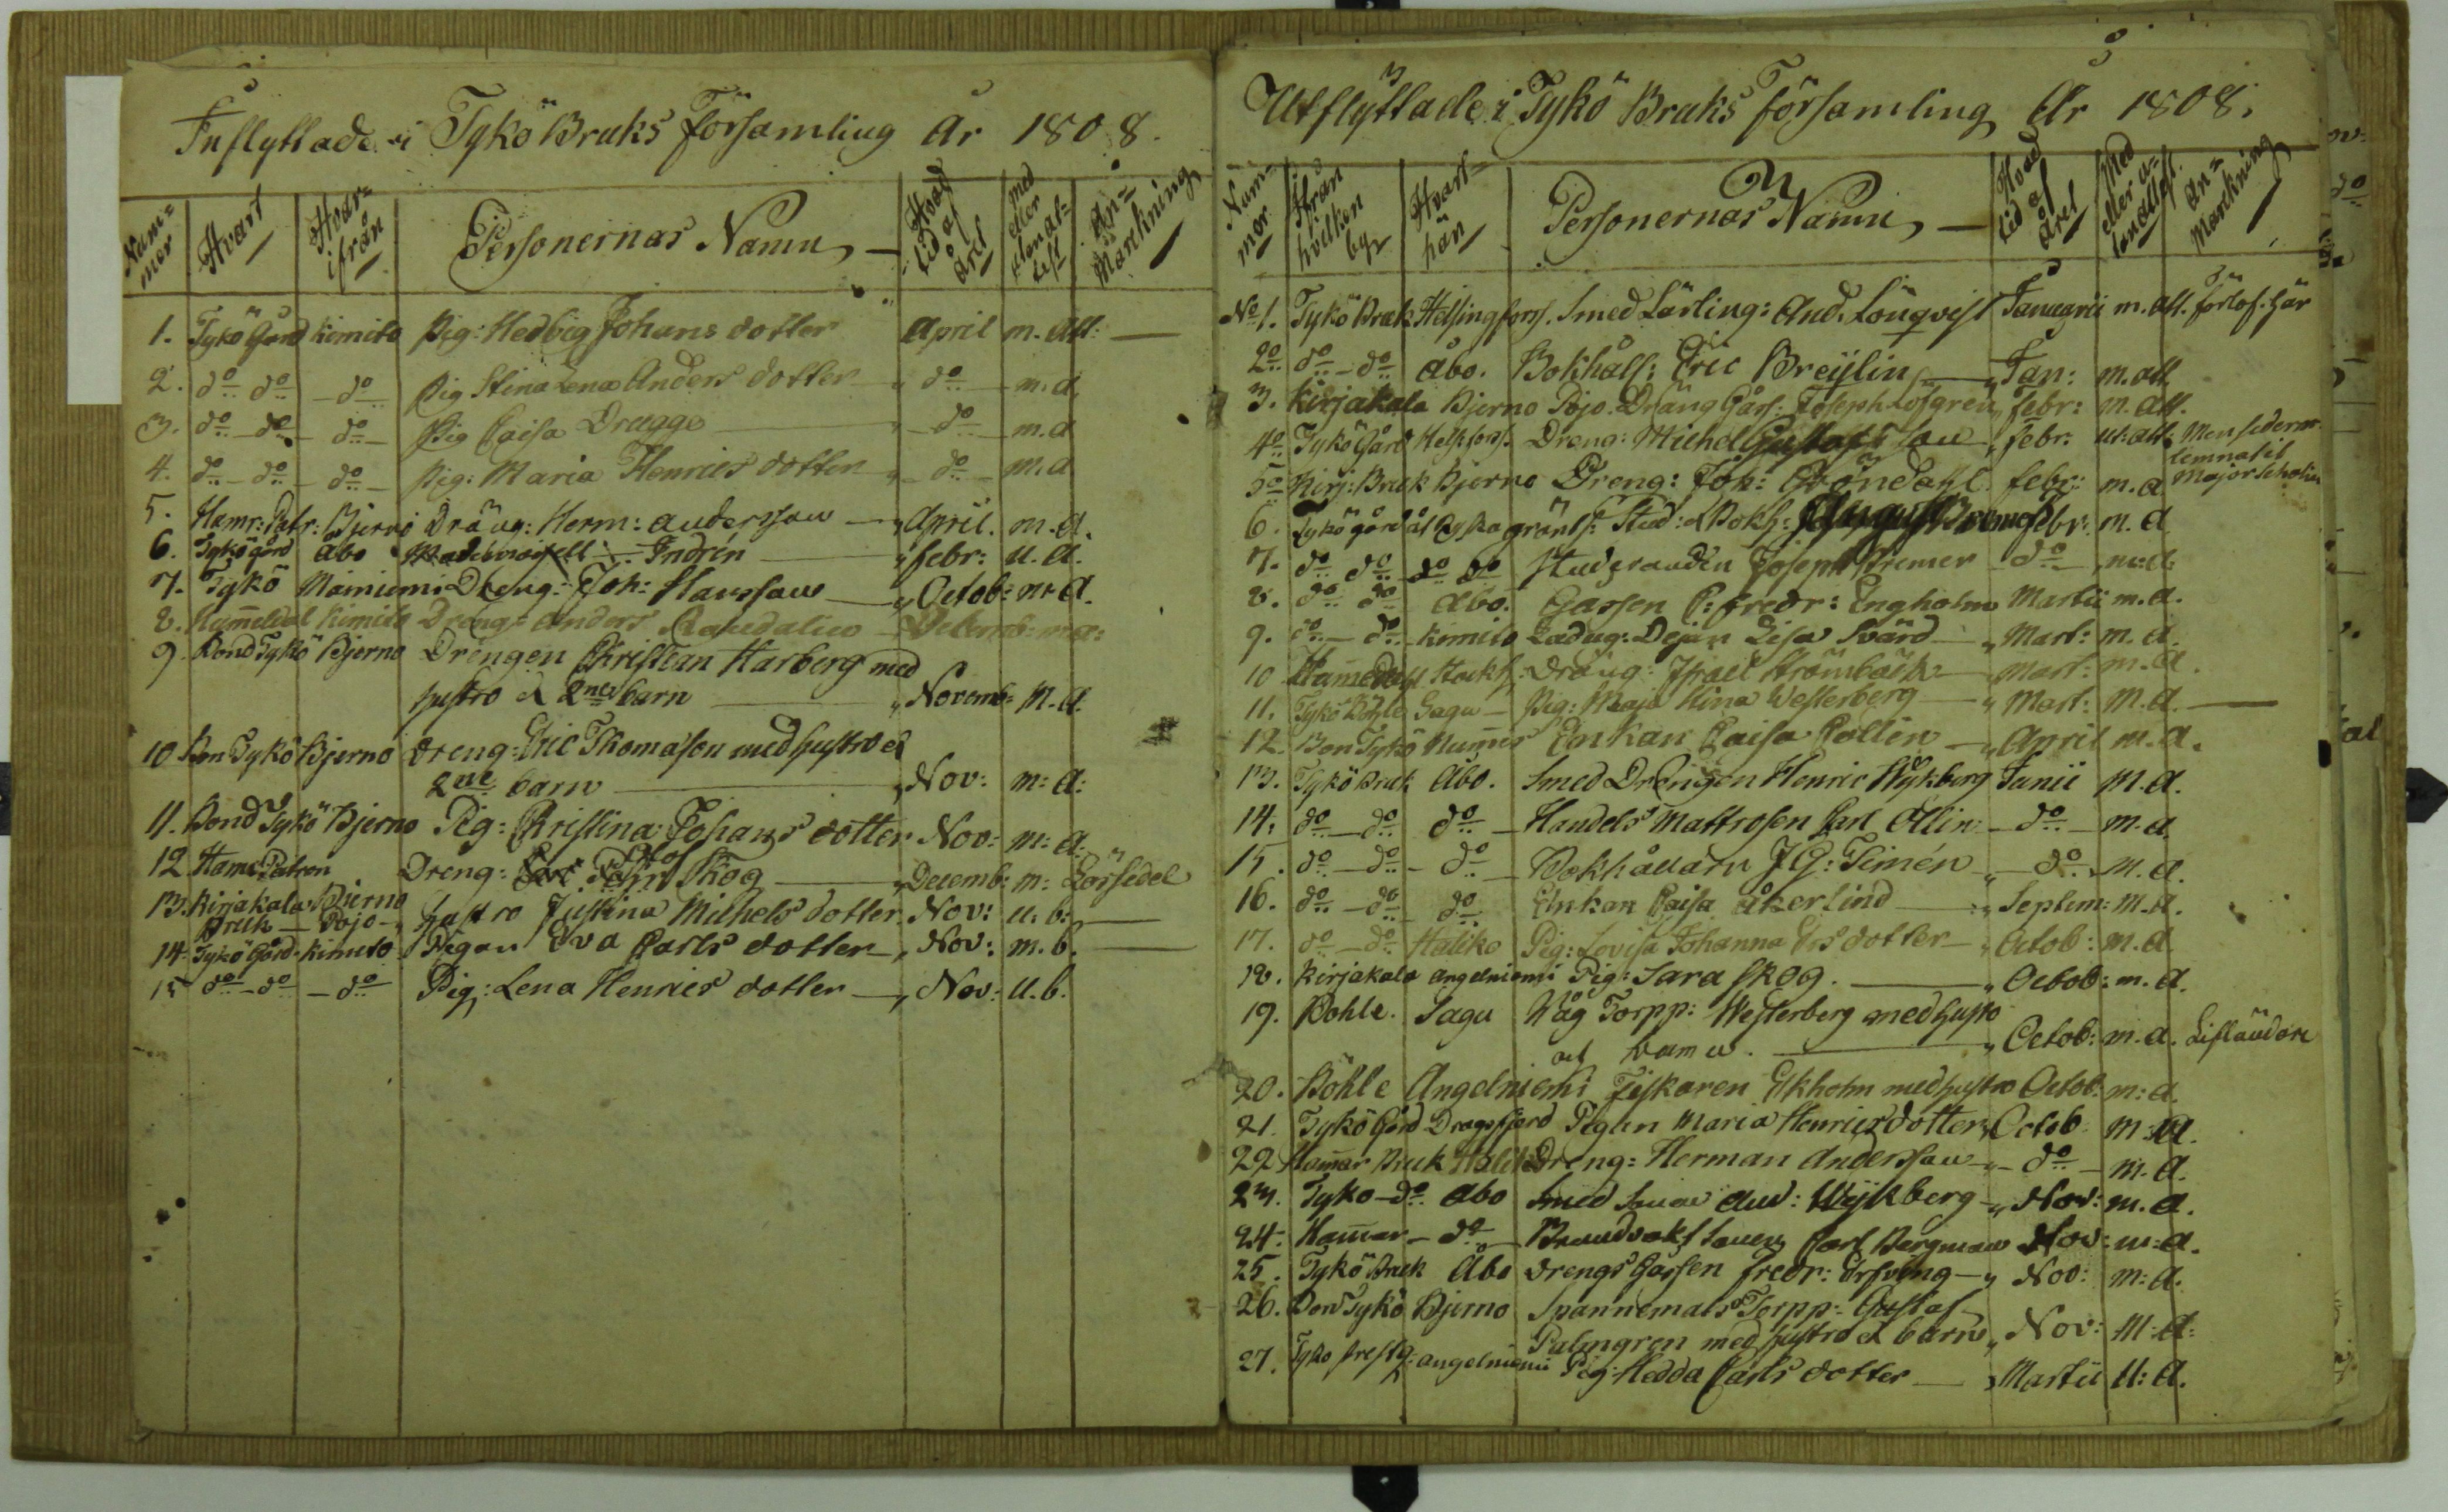 Inflyttade i Tykö Bruks Församling År 1808.
Num= mor Hvart Hvar= ifrån Personernas Namn, Hvad tid af Året med eller utan at= test An= Märckning
1. Tykö Gård Kimito Pig: Hedvig Johans dotter April m. att:
2. do do do Pig Stina Lena Anders dotter " do m. a.
3. do do do Pig Caisa Dragge " do m. a
4. do do do Pig: Maria Henrics dotter " do m. a
5. Hamr: Patr: Bjerno Dräng: Herm: Andersson " April. m. a.
6. Tykö gård Åbo Indrén " febr: u. a.
7. Tykö Dreng: Joh: Hansson " Octob: m. a.
8. Kimito Dreng: Anders Decemb: m a:
9. Bond Tykö Bjerno Drengen Christian Harberg med
hustro & 2ne barn " Novemb: m. a.
10 Bon Tykö Bjerno Dreng: Eric Thomason med hustro &
2ne barn " Nov: m: a:
11. Bond Tykö Bjerno Pig: Christina Johans dotter Nov: m: a:
12 Ham: Patron Dreng: John Skog " Decemb: m: Lörsedel
13. Kirjakala Bjerno
Bruk Pojo hustro Justina Michels dotter. Nov: u. b:
14. Tykö Gård Kimito Pigan Eva Carls dotter " Nov: m. b.
15 do do do Pig: Lena Henrics dotter " Nov: u. b.
Utflyttade i Tykö Bruks Församling År 1808.
Num= mor Ifrån hvilken by Hvart= hän Personernas Namn, Hvad tid af Året Med eller u= tan attest. An= Marckning
No 1. Tykö Bruk Helsingfors. Smed Lärling: And. Lönqvist Januarii m. att.
2o do do Åbo. Bokhåll: Eric Breÿlin " Jan: m. att.
3. Kirjakala Bjerno Pojo. Dräng Gåss: Joseph Löfgren " febr: m. att.
4o Tykö Gård Helsfors. Dreng: Michel Gustafs son " febr: ut: att. Men sederm: lemnatil Major
5o Kirj: Bruk Bjerno Dreng: Joh: Gröndahl. febr: m. a
6. Tykö gård åt Ryska gränts: Stud: & Bokh: August Bremer febr: m. a
7. do do do do Studeranden Joseph Bremer do m: a:
8. do do Åbo. Gassen C: fredr: Engholm Martii m. a.
9. do do Kimito Ladug: Dejan Lisa Svärd " Mart: m. a.
10 Hamedahl Stockh: Dräng: Israel Strömbäck Mart: m. a.
11. Tykö Böhle Sagu Pig: Maja Stina Westerberg " Mart: m. a.
12. Bon Tykö Enkan Caisa Collin " April m. a.
13. Tykö Bruk Åbo. Smed Drengen Henric Wykberg Junii m. a.
14. do do do Handels Mattrosen Carl Ollin do m. a
15. do do do Bokhållarn J G: Timén " do m. a.
16. do do do Enkan Caisa Åkerlind " Septem: m. a.
17. do do Haliko Pig: Lovisa Johanna Ers dotter " Octob: m. a
18. Kirjakala Angelniemi Pig: Sara Skog. " Octob: m. a.
19. Böhle. Sagu Torpp: Westerberg med hustro
och barn. " Octob: m. a. Lifländare
20. Böhle Angelniemi Fiskaren Ekholm med hustro Octob: m: a.
21. Tykö Gård Dragsfjerd Pigan Maria Henrics dotter Octob m: a.
22 Hamar Bruk Haliko Dreng: Herman Andersson " do m. a.
23. Tykö do Åbo Smed And: Wÿkberg " Nov: m. a.
24. Hamar do Carl Bergman Nov: m: a.
25. Tykö Bruk Åbo Drengs Gåssen fredr: " Nov: m: a.
26. Bond Tykö Bjerno Spannemåls Torpp: Gustaf
Palmgren med hustro & barn " Nov: m: a:
27. Tykö Angelniemi Pig: Hedda Carls dotter " Martii u: a.